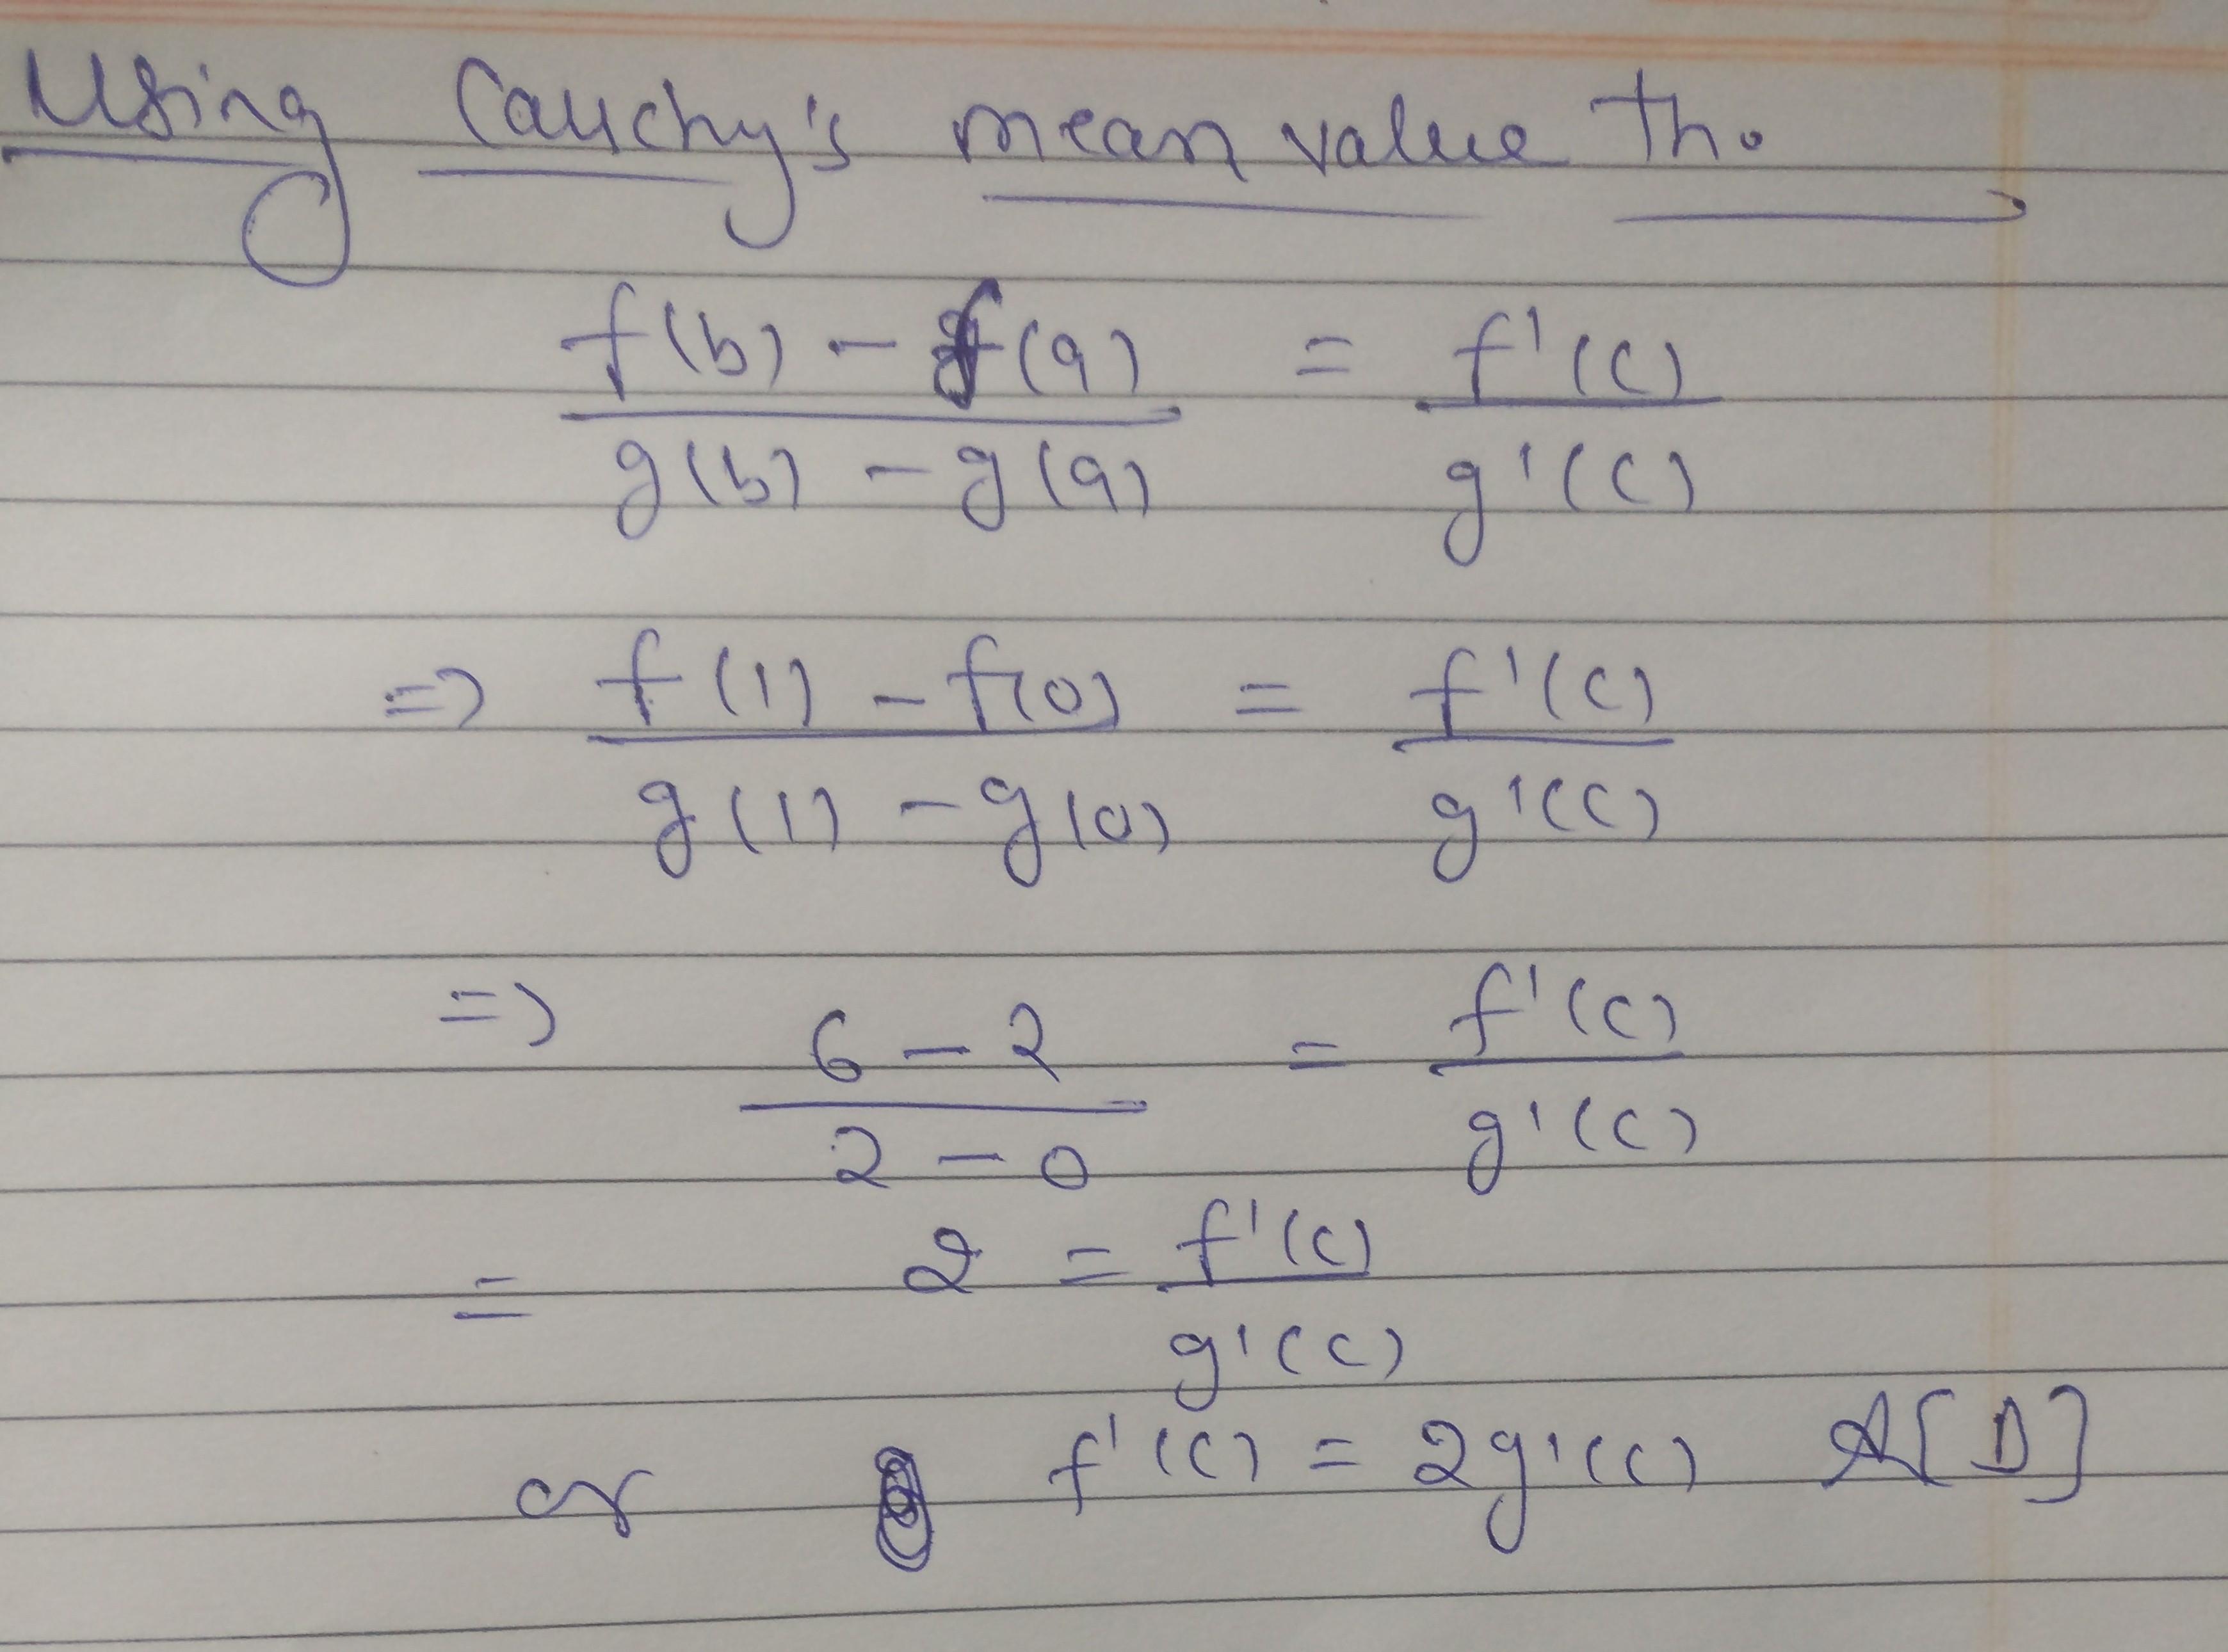 Using Cauchy's mean value Th.
f(b) - f(a) = f'(c)
g(b) - g(a) g'(c)
=> f(1) - f(0) = f'(c)
g(1) - g(0) g'(c)
=> 6 - 2 = f'(c)
2 - 0 g'(c)
= 2 = f'(c)
g'(c)
or f'(c) = 2g'(c) A[D]